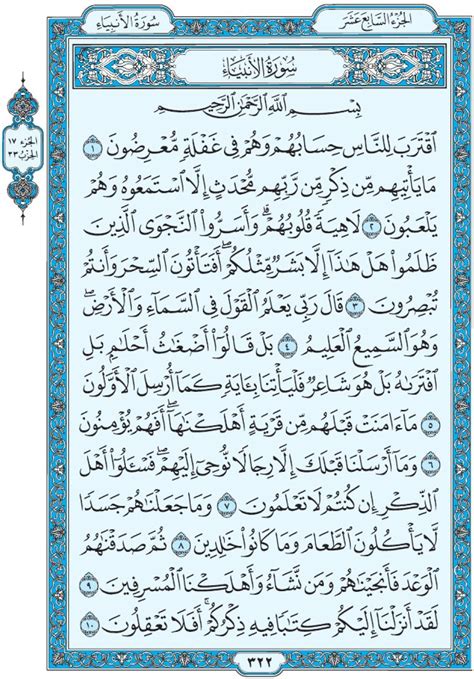 الجزء السابع عشر
سورة الأنبياء
سُورَةُ الأَنبِيَاءِ
الجزء ١٧
الحزب ٣٣
بِسْمِ ٱللَّهِ ٱلرَّحْمَٰنِ ٱلرَّحِيمِ
ٱقْتَرَبَ لِلنَّاسِ حِسَابُهُمْ وَهُمْ فِى غَفْلَةٍ مُّعْرِضُونَ ١
مَا يَأْتِيهِم مِّن ذِكْرٍ مِّن رَّبِّهِم مُّحْدَثٍ إِلَّا ٱسْتَمَعُوهُ وَهُمْ
يَلْعَبُونَ ٢ لَاهِيَةً قُلُوبُهُمْ ۗ وَأَسَرُّوا۟ ٱلنَّجْوَى ٱلَّذِينَ
ظَلَمُوا۟ هَلْ هَٰذَآ إِلَّا بَشَرٌ مِّثْلُكُمْ ۖ أَفَتَأْتُونَ ٱلسِّحْرَ وَأَنتُمْ
تُبْصِرُونَ ٣ قَالَ رَبِّى يَعْلَمُ ٱلْقَوْلَ فِى ٱلسَّمَآءِ وَٱلْأَرْضِ ۖ
وَهُوَ ٱلسَّمِيعُ ٱلْعَلِيمُ ٤ بَلْ قَالُوٓا۟ أَضْغَٰثُ أَحْلَٰمٍۭ بَلِ
ٱفْتَرَىٰهُ بَلْ هُوَ شَاعِرٌ فَلْيَأْتِنَا بِـَٔايَةٍ كَمَآ أُرْسِلَ ٱلْأَوَّلُونَ
٥ مَآ ءَامَنَتْ قَبْلَهُم مِّن قَرْيَةٍ أَهْلَكْنَٰهَآ ۖ أَفَهُمْ يُؤْمِنُونَ
٦ وَمَآ أَرْسَلْنَا قَبْلَكَ إِلَّا رِجَالًا نُّوحِىٓ إِلَيْهِمْ ۖ فَسْـَٔلُوٓا۟ أَهْلَ
ٱلذِّكْرِ إِن كُنتُمْ لَا تَعْلَمُونَ ٧ وَمَا جَعَلْنَٰهُمْ جَسَدًا
لَّا يَأْكُلُونَ ٱلطَّعَامَ وَمَا كَانُوا۟ خَٰلِدِينَ ٨ ثُمَّ صَدَقْنَٰهُمُ
ٱلْوَعْدَ فَأَنجَيْنَٰهُمْ وَمَن نَّشَآءُ وَأَهْلَكْنَا ٱلْمُسْرِفِينَ ٩
لَقَدْ أَنزَلْنَآ إِلَيْكُمْ كِتَٰبًا فِيهِ ذِكْرُكُمْ ۖ أَفَلَا تَعْقِلُونَ ١٠
٣٢٢